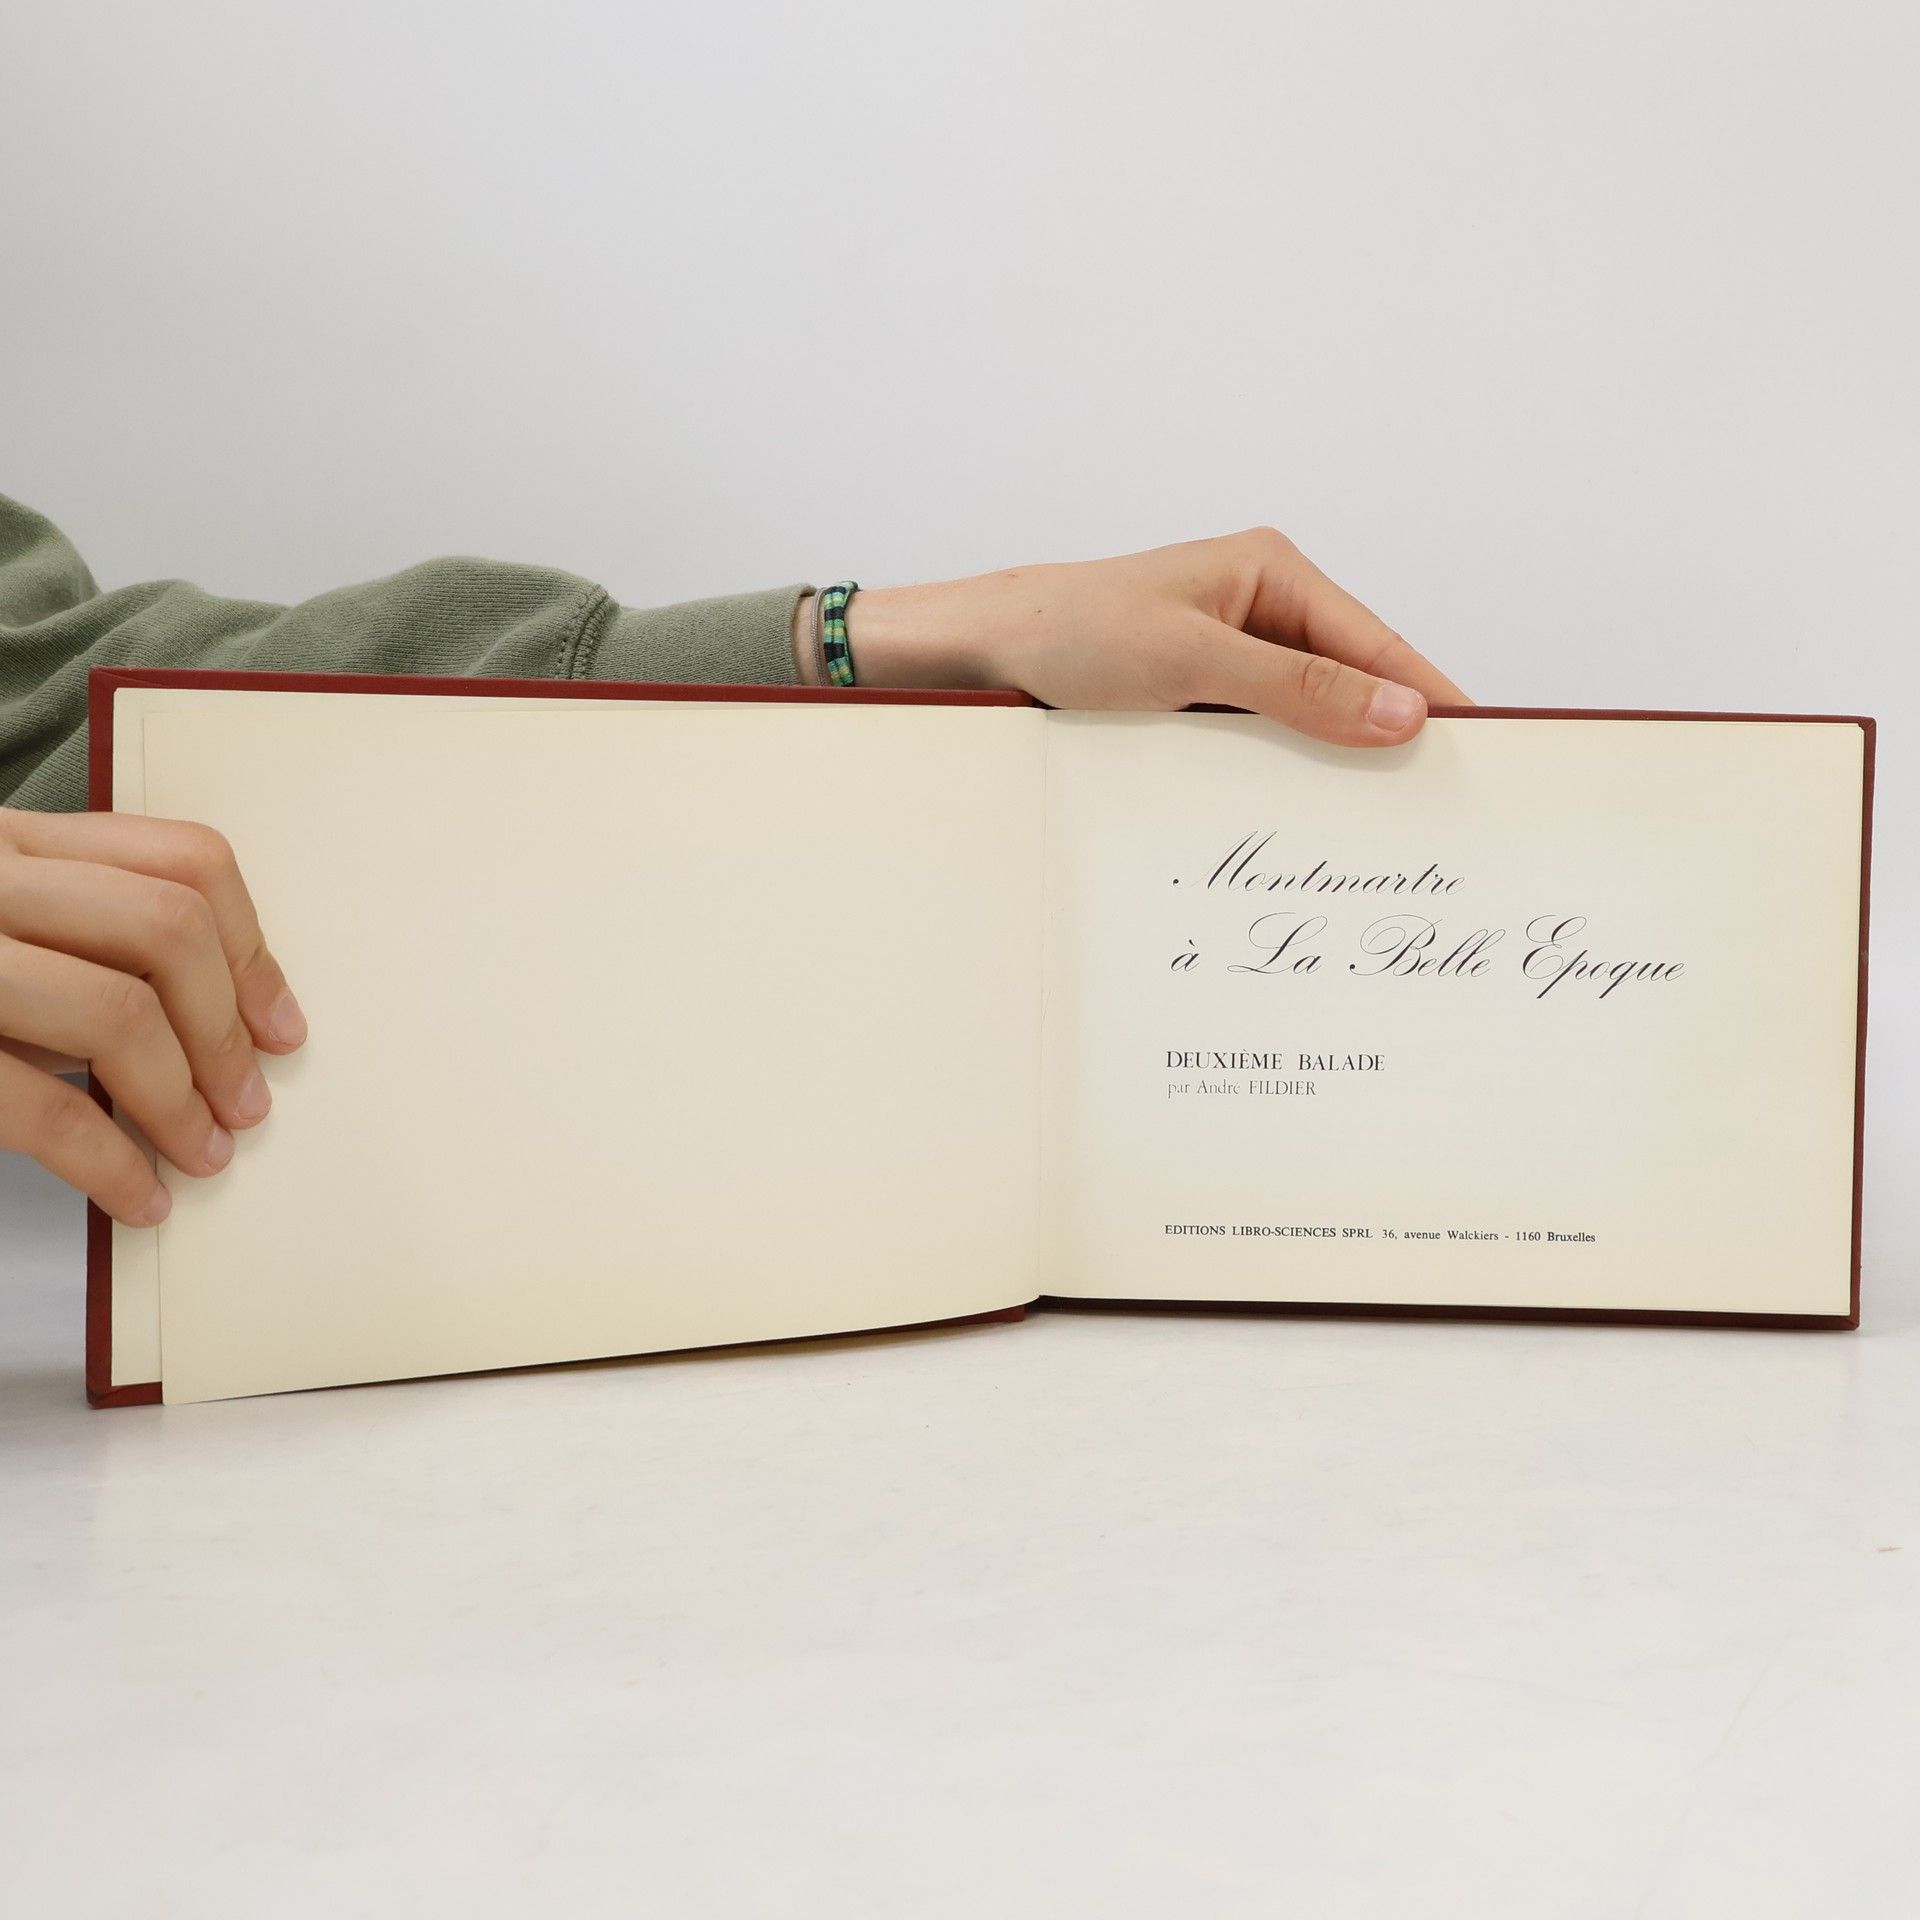 Montmartre
à La Belle Epoque
DEUXIÈME BALADE
par André FILDIER
EDITIONS LIBRO-SCIENCES SPRL 36, avenue Walckiers - 1160 Bruxelles